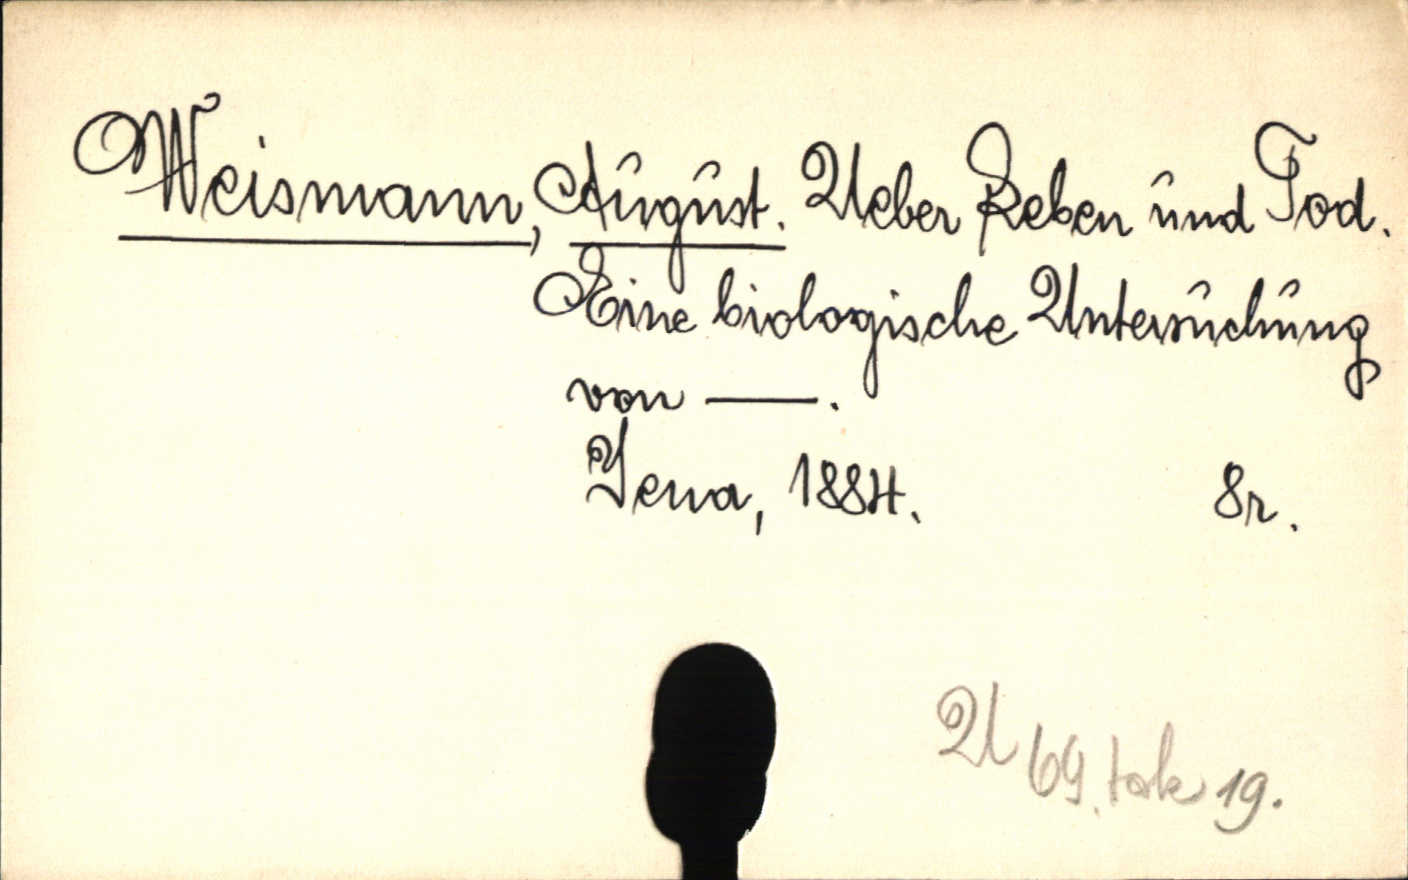 Weismann, August. Ueber Leben und Tod.
Eine biologische Untersuchung
von —.
Jena, 1884. 8r.
U 69. tok 19.